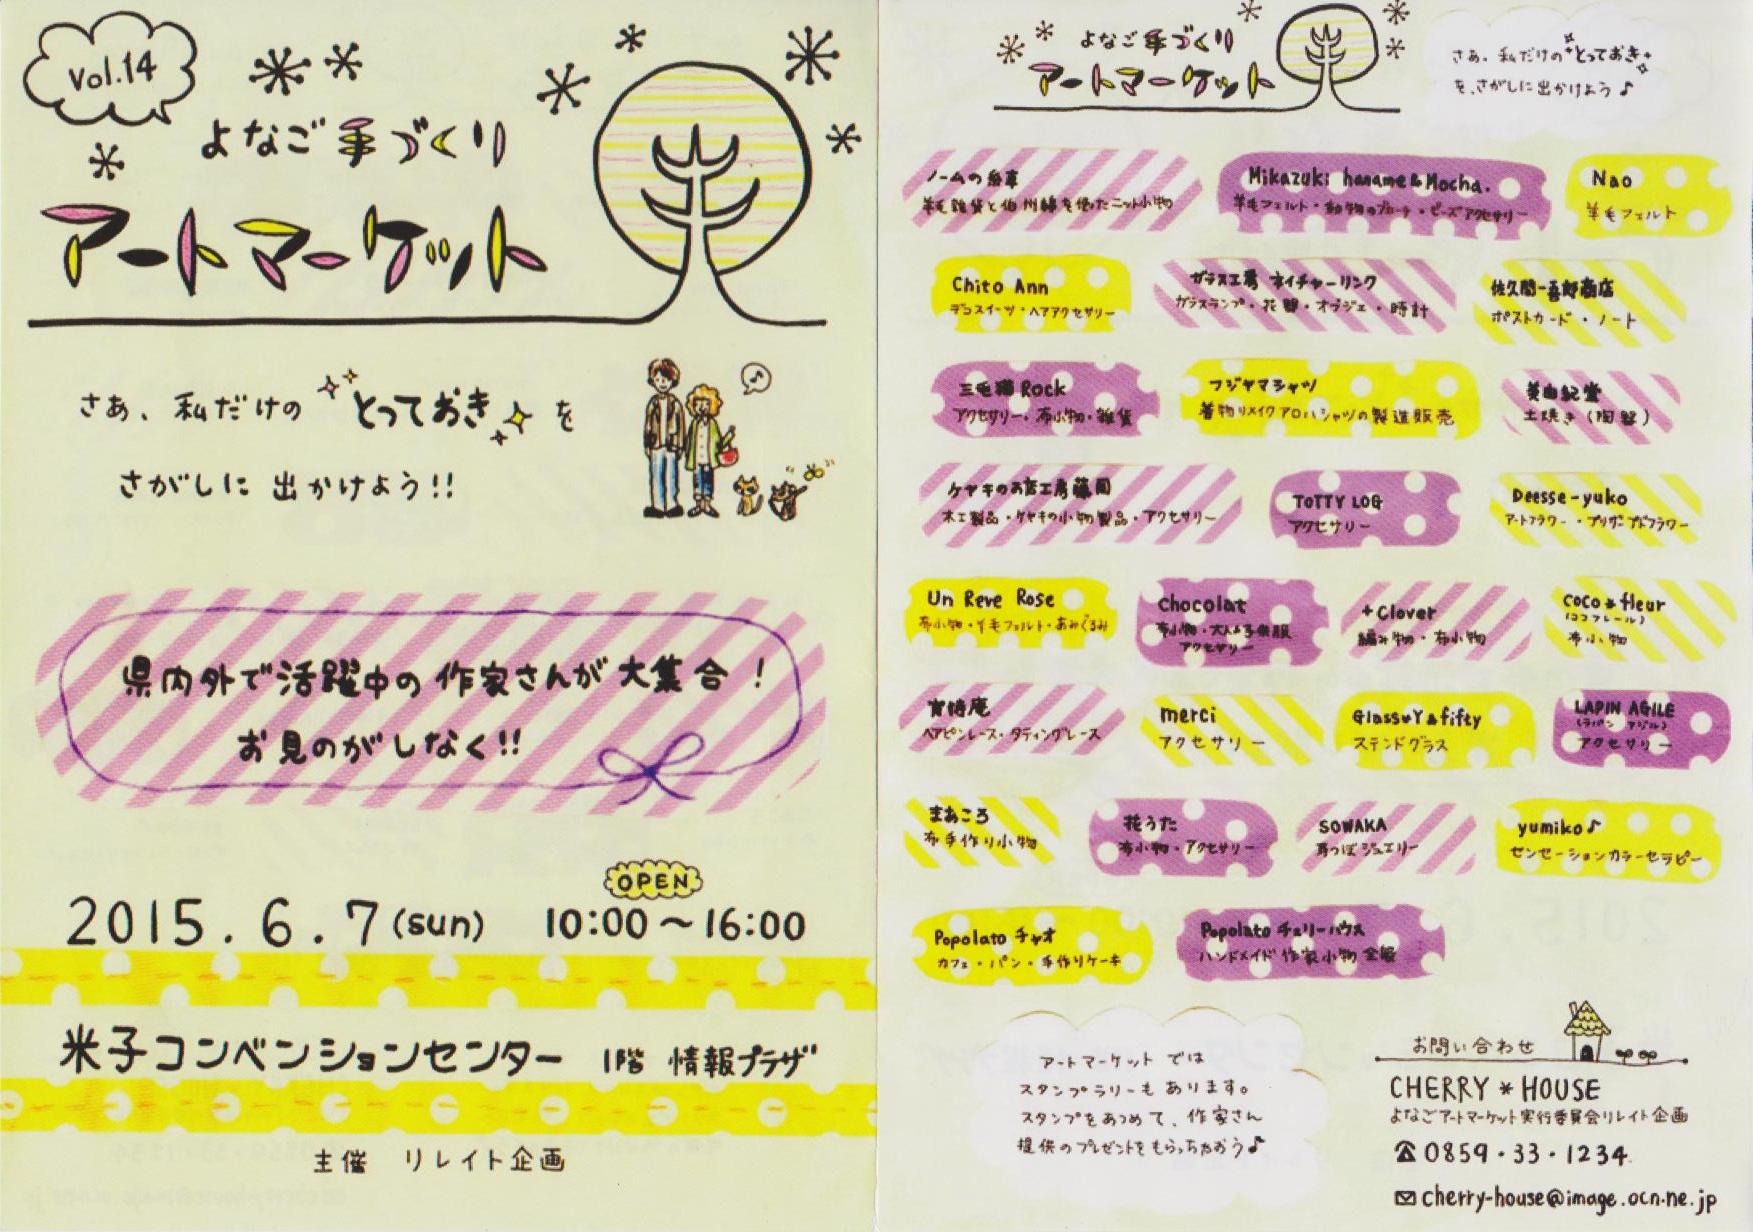 Vol.14
よなご手づくり
アートマーケット
さあ、私だけの とっておき を
さがしに 出かけよう!!
県内外で活躍中の作家さんが大集合!
お見のがしなく!!
OPEN
2015.6.7(sun) 10:00〜16:00
米子コンベンションセンター 1階 情報プラザ
主催 リレイト企画
よなご手づくり
アートマーケット
さあ、私だけの とっておき
を、さがしに出かけよう♪
ノームの糸車
羊毛雑貨と伯州綿を使たニット小物
Mikazuki haname & Mocha.
羊毛フェルト・動物のブローチ・ビーズアクセサリー
Nao
羊毛フェルト
Chito Ann
デコスイーツ・ヘアアクセサリー
ガラス工房 ネイチャーリンク
ガラスランプ・花器・オブジェ・時計
佐久間一吾郎商店
ポストカード・ノート
三毛猫Rock
アクセサリー・布小物・雑貨
フジヤマシャツ
着物リメイクアロハシャツの製造販売
美由紀堂
土焼き(陶器)
ケヤキのお店工房藤岡
木工製品・ケヤキの小物製品・アクセサリー
TOTTY LOG
アクセサリー
Deesse-yuko
アートフラワー・プリザーブドフラワー
Un Reve Rose
布小物・羊毛フェルト・あみぐるみ
Chocolat
布小物・大人&子供服
アクセサリー
+Clover
編み物・布小物
CoCo*fleur
(ココフレール)
布小物
ヘアピンレース・タティングレース
merci
アクセサリー
Glass*Y&fifty
ステンドグラス
LAPIN AGILE
(ラパン アジル)
アクセサリー
まあころ
布手作り小物
花うた
布小物・アクセサリー
SOWAKA
耳つぼジュエリー
yumiko♪
センセーションカラーセラピー
Popolato チャオ
カフェ・パン・手作りケーキ
Popolato チェリーハウス
ハンドメイド作家小物全般
アートマーケットでは
スタンプラリーもあります。
スタンプをあつめて、作家さん
提供のプレゼントをもらっちゃおう♪
お問い合わせ
CHERRY * HOUSE
よなごアートマーケット実行委員会リレイト企画
☎0859・33・1234
✉cherry-house@image.ocn.ne.jp